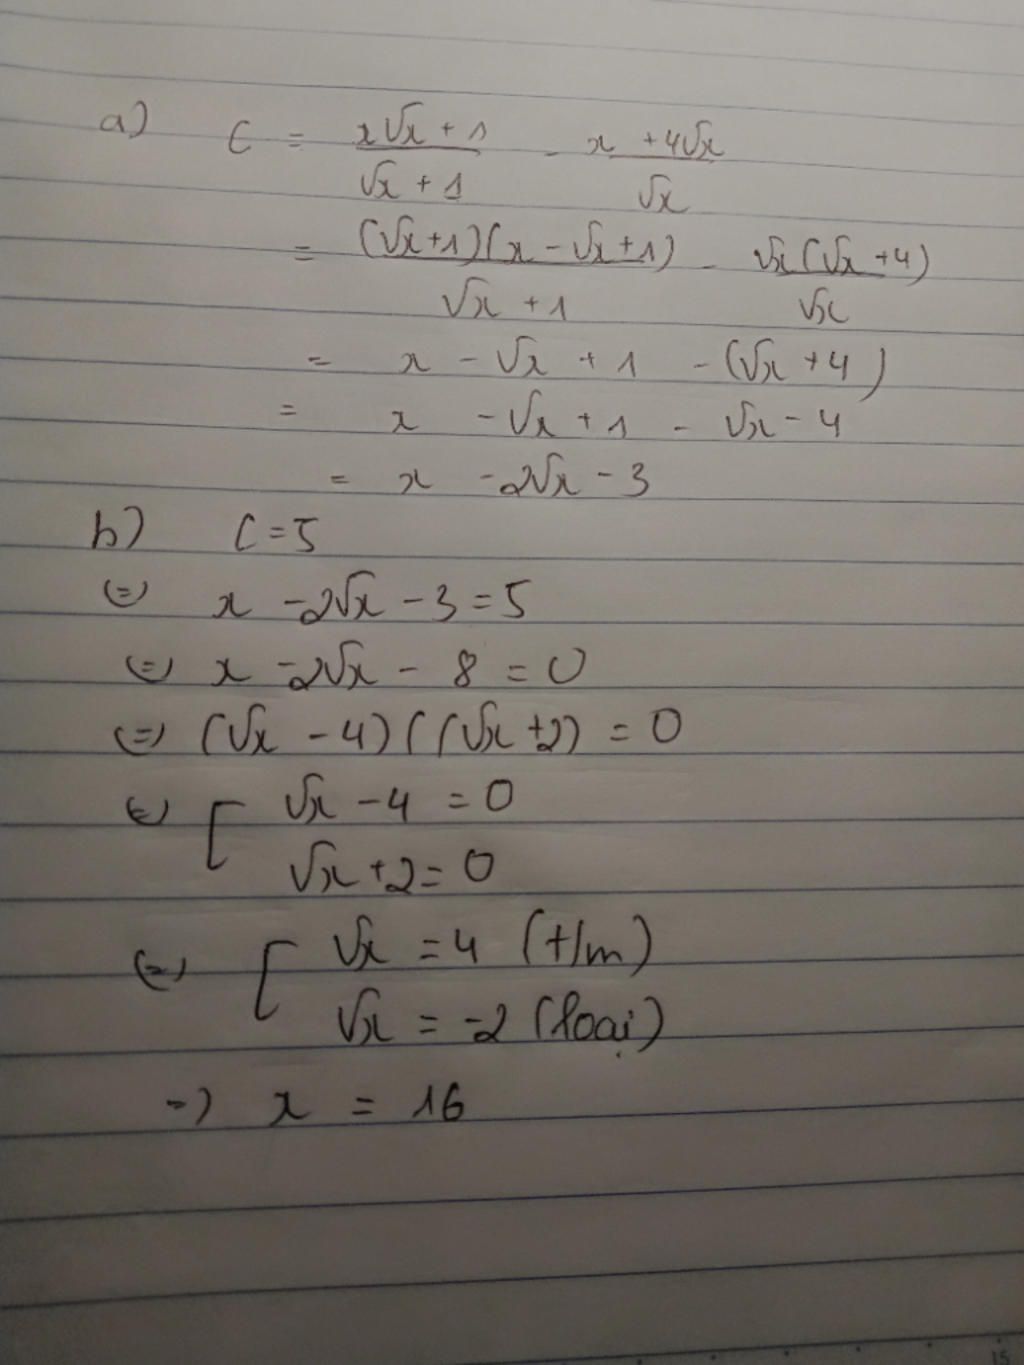 a) C = x√x + 1 / √x + 1 - x + 4√x / √x
= (√x+1)(x - √x+1) / √x + 1 - √x(√x+4) / √x
= x - √x + 1 - (√x + 4)
= x - √x + 1 - √x - 4
= x - 2√x - 3
b) C = 5
(=) x - 2√x - 3 = 5
(=) x - 2√x - 8 = 0
(=) (√x - 4)((√x + 2) = 0
(=) [ √x - 4 = 0
√x + 2 = 0
(=) [ √x = 4 (t/m)
√x = -2 (loại)
=) x = 16
15